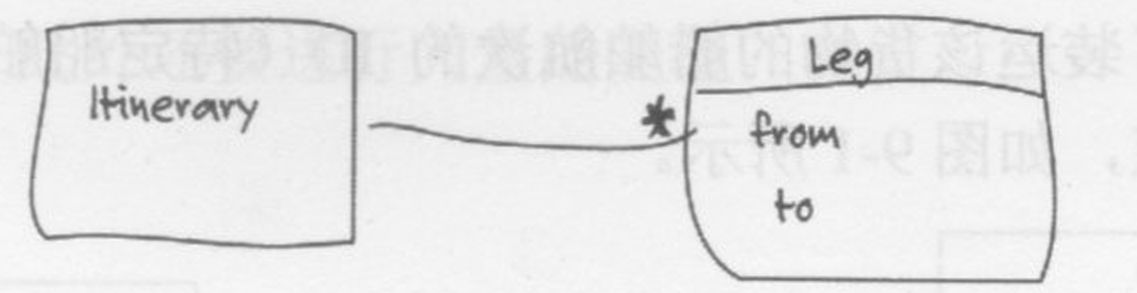 Itinerary
*
Leg
from
to